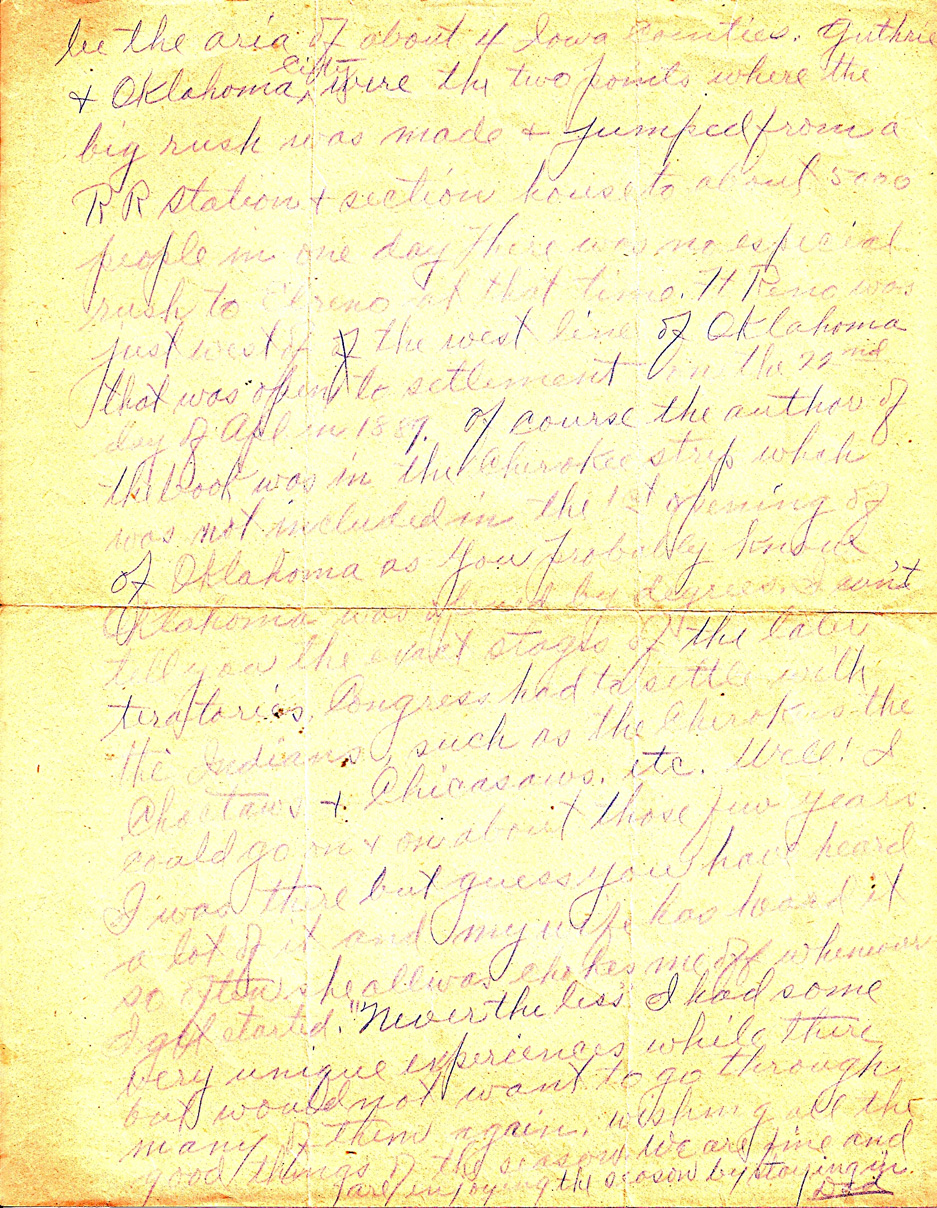 be the aria of about 4 Iowa Counties. Guthrie
& Oklahoma City wire the two points where the
big rush was made & jumped from a
R R station & section house to about 5000
people in one day There was no especial
rush to Elreno at that time. El Reno was
just west of of the west line of Oklahoma
that was open to settlement on the 22nd
day of Apl in 1889. of course the author of
the book was in the Cherokee strip which
was not included in the 1st opening of
of Oklahoma as you probably know
Oklahoma was opened by degrees. I can't
tell you the exact stages of the later
teratories. Congress had to settle with
the Indians, such as the Cherokees the
Choctaws & Chicasaws. etc. Well! I
could go on & on about those few years
I was there but guess you have heard
a lot of it and my wife has heard it
so often she allwas chokes me off whenever
I get started. "Never the less I had some
very unique experiences while there
but would not want to go through
many of them again. wishing all the
good things of the season We are fine and
are enjoying the season by staying in.
Dad